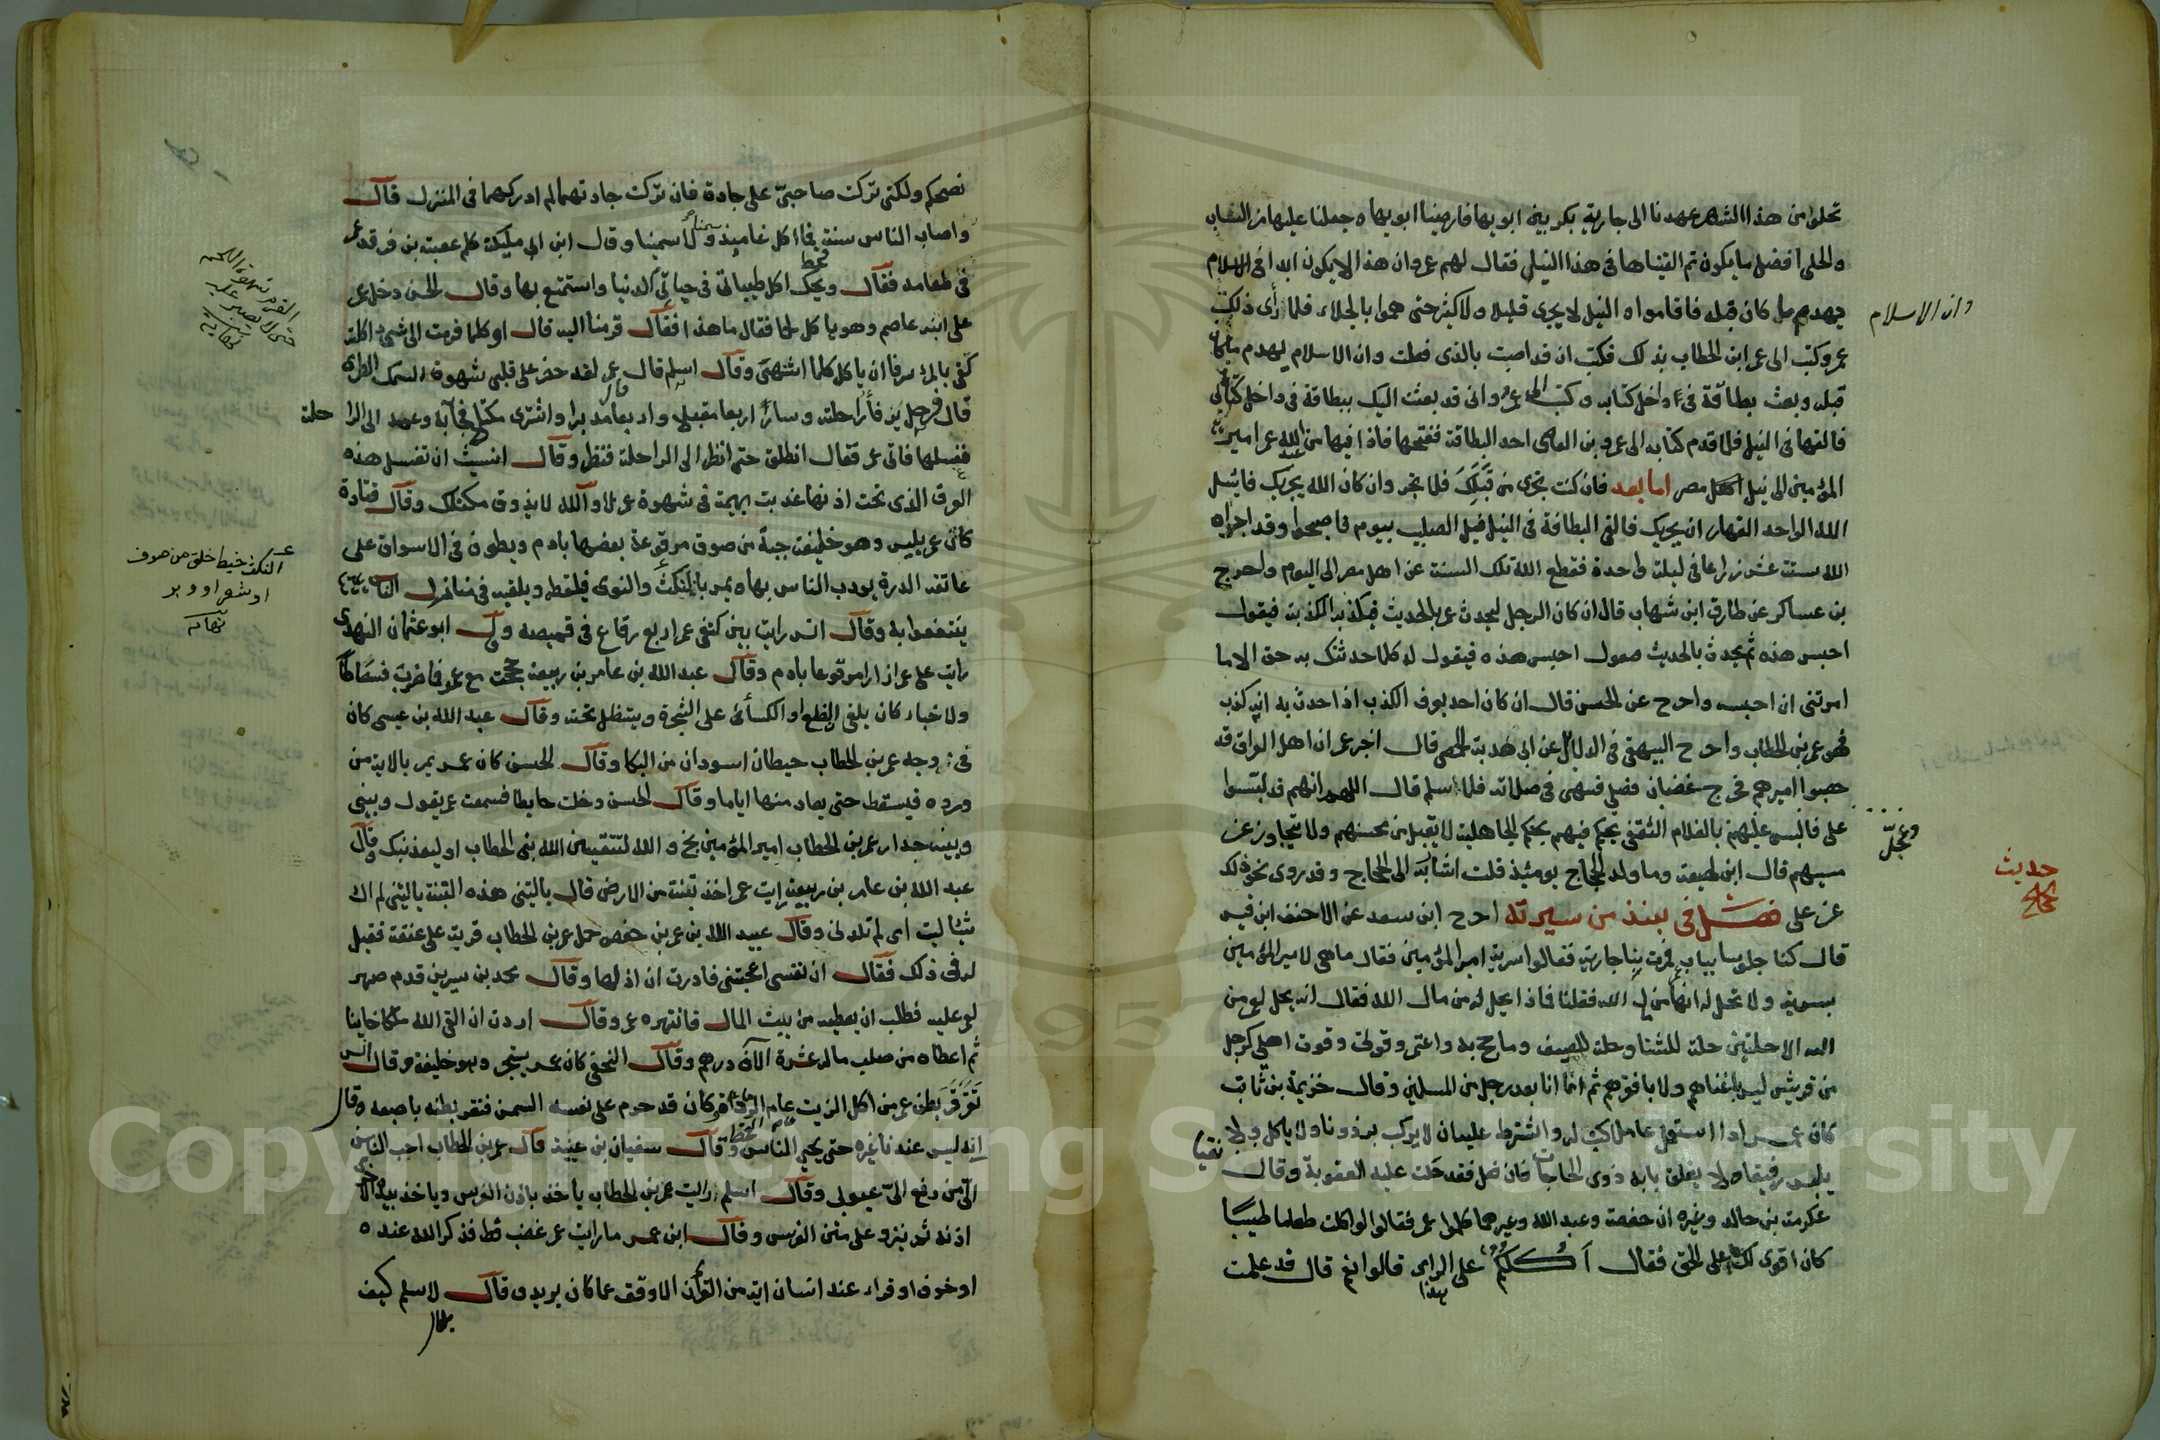 تخلوا من هذا الشهر عهدنا الى جارية بكر بين ابويها فارضينا ابويها وجعلنا عليها من الثياب
والحلى افضل ما يكون ثم القيناها فى هذا النيل فقال لهم عمرو ان هذا لا يكون ابدا فى الاسلام
وان الاسلام
يهدم ما كان قبله فاقاموا والنيل لا يجرى قليلا ولا كثيرا حتى هموا بالجلاء فلما رأى ذلك
عمرو كتب الى عمر ابن الخطاب بذلك فكتب ان قد اصبت بالذى فعلت وان الاسلام يهدم ما كان
قبله وبعث بطاقة فى داخل كتابه وكتب الى عمرو انى قد بعثت اليك ببطاقة فى داخل كتابى
فالقها فى النيل فلما قدم كتابه الى عمرو بن العاص اخذ البطاقة ففتحها فاذا فيها من عبد الله عمر امير
المؤمنين الى نيل اهل مصر اما بعد فان كنت تجرى من قبلك فلا تجر وان كان الله يجريك فاسئل
الله الواحد القهار ان يجريك فالقى البطاقة فى النيل قبل الصليب بيوم فاصبحوا وقد اجراه
الله ستة عشر ذراعا فى ليلة واحدة فقطع الله تلك السنة عن اهل مصر الى اليوم واخرج
بن عساكر عن طارق ابن شهاب قال ان كان الرجل ليحدث عمر بالحديث فيكذبه الكذبة فيقول
احبس هذه ثم يحدث بالحديث فيقول احبس هذه فيقول له كلما حدثتك به حق الا ما
امرتنى ان احبسه واخرج عن الحسن قال ان كان احد يعرف الكذب اذا احدث به انه كذب
فهو عمر بن الخطاب واخرج البيهقى فى الدلائل عن ابى هدبة الحمصى قال اخبر عمر ان اهل العراق قد
حصبوا اميرهم فخرج غضبان فصلى فسهى فى صلاته فلما سلم قال اللهم انهم قد لبسوا
على فالبس عليهم بالغلام الثقفى يحكم فيهم بحكم الجاهلية لا يقبل من محسنهم ولا يتجاوز عن
وعجل
مسيهم قال ابن لهيعة وما ولد الحجاج يومئذ قلت اشار به الى الحجاج وقد روى نحو ذلك
حديث
حجاج
عن على فصل فى نبذ من سيرته اخرج ابن سعد عن الاحنف ابن قيس
قال كنا جلوسا بباب عمر فمرت بنا جارية فقالوا سرية امير المؤمنين فقال ما هى لامير المؤمنين
بسرية ولا تحل له انها من مال الله فقلنا فماذا يحل له من مال الله فقال انه يحل لعمر من
الله الا حلتين حلة للشتا وحلة للصيف وما حج به واعتمر وقوتى وقوت اهلى كرجل
من قريش ليس باغناهم ولا بافقرهم ثم انما انا بعد رجل من المسلمين وقال خزيمة بن ثابت
كان عمر اذا استعمل عاملا كتب له واشترط عليه ان لا يركب برذونا ولا ياكل
نقيا
يلبس رقيقا ولا يغلق بابه ذوى الحاجات فان فعل فقد حلت عليه العقوبة وقال
عكرمة بن خالد وغيره ان حفصة وعبد الله وغيرهما كلموا عمر فقالوا لو اكلت طعاما طيبا
كان اقوى لك على الحق فقال أكلكم على هذا الراى قالوا نعم قال قد علمت
نصحكم ولكنى تركت صاحبى على جادة فان تركت جادتهما لم ادركهما فى المنزل قال
واصاب الناس سنة فما اكل عامئذ سمنا ولا سمينا وقال ابن ابى مليكة كلم عتبة بن فرقد عمر
فى طعامه فقال ويحك اكل طيباتى فى حياتى الدنيا واستمتع بها وقال الحسن دخل عمر
على ابنه عاصم وهو ياكل لحما فقال ما هذا فقال قرمنا اليه قال او كلما قرمت الى شئ اكلته
كفى بالمرء سرفا ان ياكل كلما اشتهى وقال اسلم قال عمر لقد خطر على قلبى شهوة السمك الطرى
قال فرحل يرفأ راحلته وسار اربعا مقبلا واربعا مدبرا واشترى مكتلا فجآ به وعمد الى الرا
حلة
فغسلها فاتى عمر فقال انطلق حتى انظر الى الراحلة فنظر وقال انسيت ان تغسل هذه
العرق الذى تحت اذنها عذبت بهيمة فى شهوة عمر لا والله لا يذوق مكتلك وقال قتادة
كان عمر يلبس وهو خليفة جبة من صوف مرقوعة بعضها بادم ويطوف فى الاسواق على
عاتقه الدرة يودب الناس بها ويمر بالنكث والنوى فيلتقطه ويلقيه فى منازل الناس
النكث خيط خلق من صوف
او شعر او وبر
نهايه
ينتفعوا به وقال انس رايت بين كتفى عمر اربع رقاع فى قميصه وقال ابو عثمان النهدى
رايت على عمر ازارا مرقوعا بادم وقال عبد الله بن عامر بن ربيعة حججت مع عمر فما ضرب فسطاطا
ولا خباء كان يلقى النطع او الكسأ على الشجرة ويستظل تحته وقال عبد الله بن عيسى كان
فى وجه عمر بن الخطاب خيطان اسودان من البكا وقال الحسن كان عمر يمر بالاية من
ورده فيسقط حتى يعاد منها اياما وقال الحسن دخلت حايطا فسمعت عمر يقول وبينى
وبينه جدار عمر بن الخطاب امير المؤمنين بخ والله لتتقين الله بنى الخطاب او ليعذبنك وقال
عبد الله بن عامر بن ربيعة رايت عمر اخذ تبنة من الارض قال ياليتنى هذه التبنة ياليتنى لم اك
شيئا ليت امى لم تلدنى وقال عبيد الله بن عمر بن حفص حمل عمر بن الخطاب قربة على عنقه فقيل
له فى ذلك فقال ان نفسى اعجبتنى فاردت ان اذلها وقال محمد بن سيرين قدم صهر
لعمر عليه فطلب ان يعطيه من بيت المال فانتهره عمر وقال اردت ان القى الله ملكا خاينا
ثم اعطاه من صلب ماله عشرة الآف درهم وقال النخعى كان عمر يتجر وهو خليفة وقال انس
تقرقر بطن عمر من اكل الزيت عام الرمادة وكان قد حرم على نفسه السمن فنقر بطنه باصبعه وقال
انه ليس عندنا غيره حتى يحيى الناس وقال سفيان بن عيينة قال عمر بن الخطاب احب الناس
الى من رفع الى عيوبى وقال اسلم رايت عمر بن الخطاب ياخذ باذن الفرس وياخذ بيده الاخرى
اذنه ثم ينزو على متن الفرس وقال ابن عمر ما رايت عمر غضب قط فذكر الله عنده
او خوف او قراء عنده انسان اية من القرأن الا وقف عما كان يريد وقال لاسلم كيف
بلال